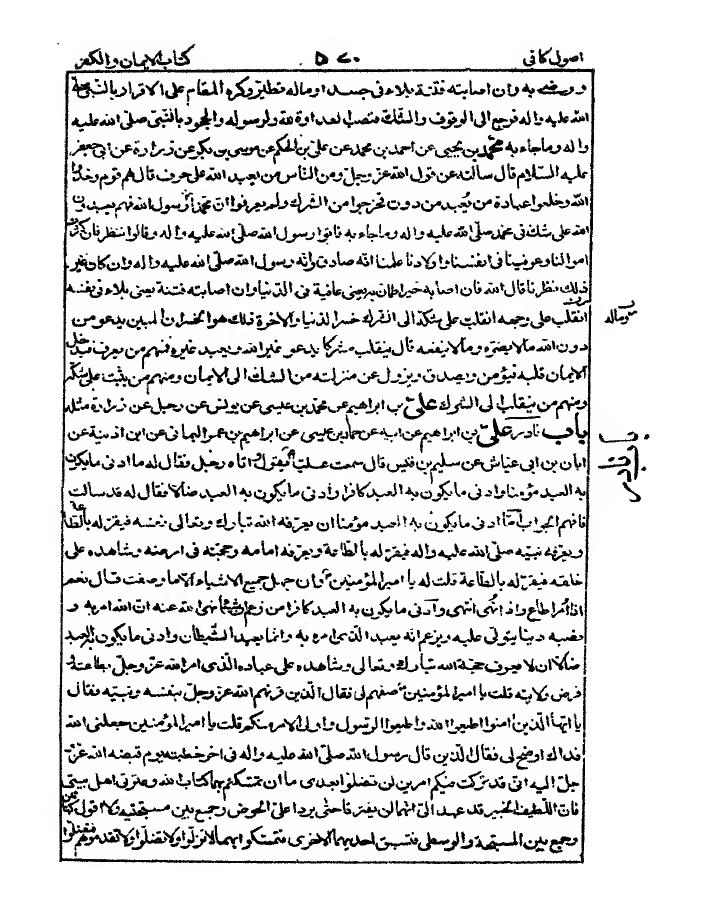 اصول كافى ٥٧٠ كتاب الايمان والكفر
ورضى به وان اصابته فتنة بلاء فى جسده اوماله تطير وكره المقام على الاقرار بالنبى صلى
الله عليه واله فرجع الى الوقوف والشك فنصب العداوة لله ولرسوله والجحود بالنبى صلى الله عليه
واله وماجاء به محمد بن يحيى عن احمد بن محمد عن على بن الحكم عن موسى بن بكر عن زرارة عن ابى جعفر
عليه السلام قال سالته عن قول الله عز وجل ومن الناس من يعبد الله على حرف قال هم قوم وحدوا
الله وخلعوا عبادة من يُعبد من دون الله فخرجوا من الشرك ولم يعرفوا ان محمدا رسول الله فهم يعبدون
الله على شك فى محمد صلى الله عليه واله وماجاء به فاتوا رسول الله صلى الله عليه واله وقالوا ننظر فان كثرت
اموالنا وعوفينا فى انفسنا واولادنا علمنا انه صادق وانه رسول الله صلى الله عليه واله وان كان غير
ذلك نظرنا قال الله فان اصابه خير اطمان به يعنى عافية فى الدنيا وان اصابته فتنة يعنى بلاء فى نفسه
وماله
انقلب على وجهه انقلب على شكه الى الشرك خسر الدنيا والاخرة ذلك هو الخسران المبين يدعو من
دون الله مالا يضره ومالا ينفعه قال ينقلب مشركا يدعو غير الله ويعبد غيره فمنهم من يعرف فيدخل
الايمان قلبه فيؤمن ويصدق ويزول عن منزلته من الشك الى الايمان ومنهم من يثبت على شكه
ومنهم من ينقلب الى الشرك على بن ابراهيم عن محمد بن عيسى عن يونس عن رجل عن زرارة مثله
باب نادر على بن ابراهيم عن ابيه عن حماد بن عيسى عن ابراهيم بن عمر اليمانى عن ابن اذينة عن
ابان بن ابى عياش عن سليم بن قيس قال سمعت عليا يقول واتاه رجل فقال له ما ادنى مايكون
به العبد مؤمنا وادنى مايكون به العبد كافرا وادنى مايكون به العبد ضالا فقال له قد سالت
فافهم الجواب اما ادنى مايكون به العبد مؤمنا ان يعرفه الله تبارك وتعالى نفسه فيقر له بالطاعة
ويعرفه نبيه صلى الله عليه واله فيقر له بالطاعة ويعرفه امامه وحجته فى ارضه وشاهده على
خلقه فيقر له بالطاعة قلت له يا امير المؤمنين وان جهل جميع الاشياء الا ما وصفت قال نعم
اذا اُمر اطاع واذا نُهى انتهى وادنى مايكون به العبد كافرا من زعم ان شيئا نهى الله عنه ان الله امر به و
نصبه دينا يتولى عليه ويزعم انه يعبد الذى امره به وانما يعبد الشيطان وادنى مايكون به العبد
ضالا ان لا يعرف حجة الله تبارك وتعالى وشاهده على عباده الذى امر الله عز وجل بطاعته و
فرض ولايته قلت يا امير المؤمنين صفهم لى فقال الذين قرنهم الله عز وجل بنفسه ونبيه فقال
يا ايها الذين امنوا اطيعوا الله واطيعوا الرسول واولى الامر منكم قلت يا امير المؤمنين جعلنى الله
فداك اوضح لى فقال الذين قال رسول الله صلى الله عليه واله فى اخر خطبته يوم قبضه الله عز و
جل اليه انى قد تركت فيكم امرين لن تضلوا بعدى ما ان تمسكتم بهما كتاب الله وعترتى اهل بيتى
فان اللطيف الخبير قد عهد الى انهما لن يفترقا حتى يردا على الحوض وجمع بين مسبحتيه ولا اقول كهاتين
وجمع بين المسبحة والوسطى فتسبق احديهما الاخرى فتمسكوا بهما لا تزلوا ولا تضلوا ولا تقدموهم فتضلوا
باب نادر